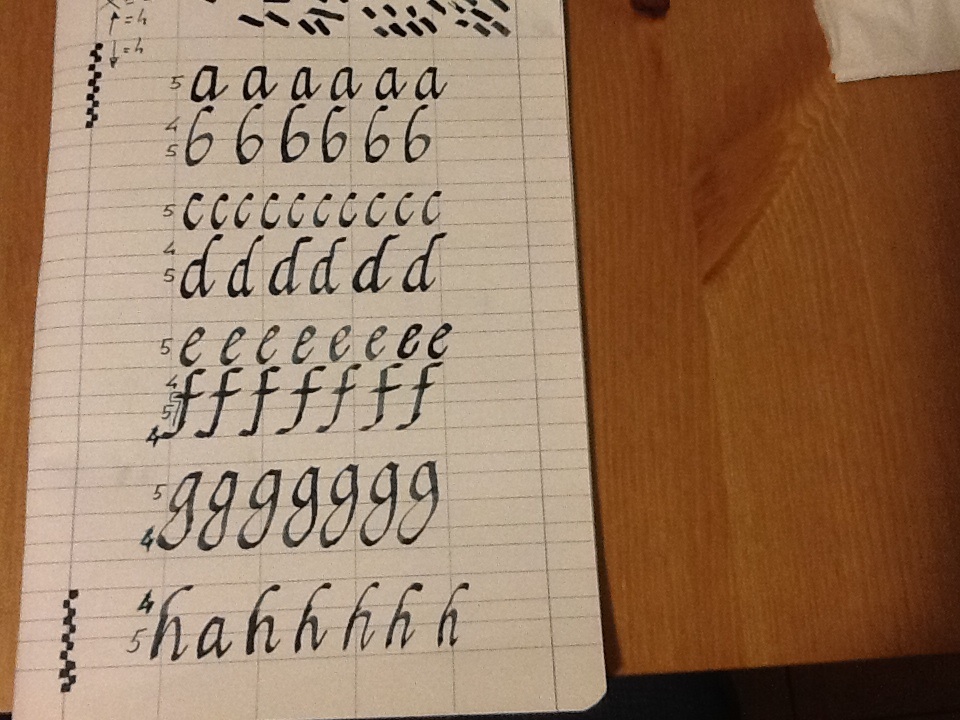 ↑=4
↓=4
5 a a a a a a
4
5 6 6 6 6 6 6
5 c c c c c c c c c c
4
5 d d d d d d
5 e e e e e e e e
4
5 f f f f f f f
4
5 g g g g g g g
4
4
5 h a h h h h h